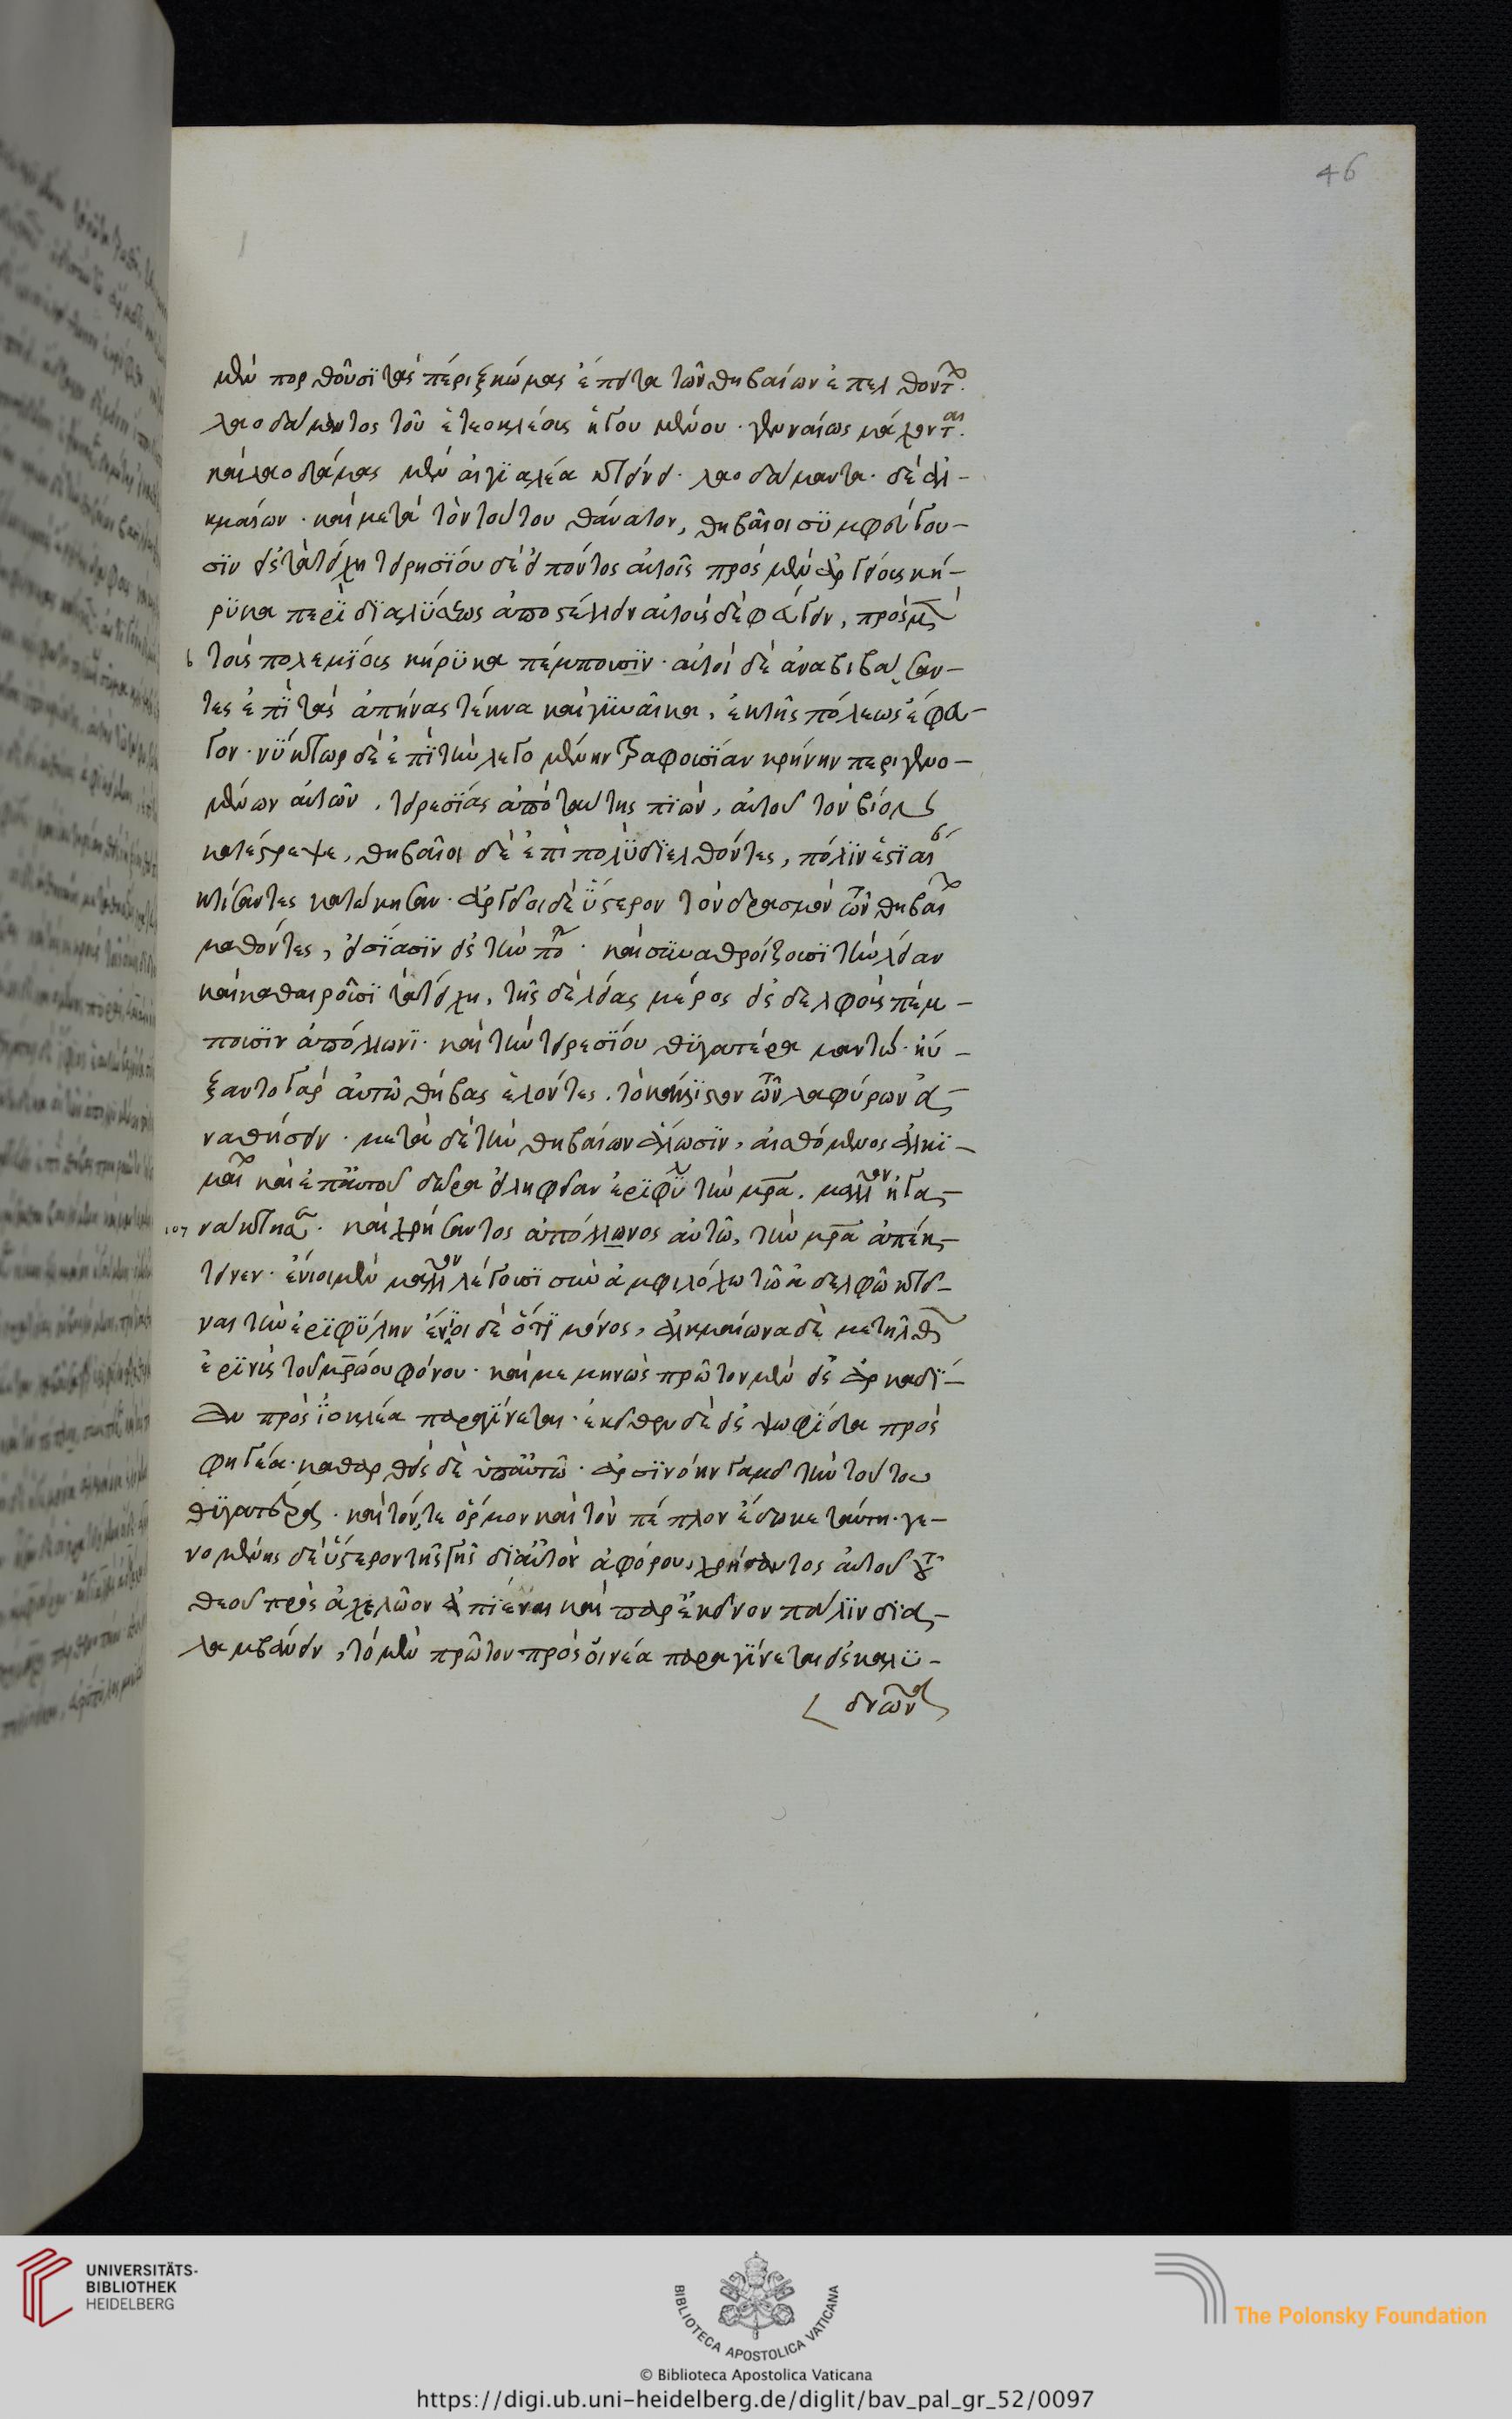 46
μὲν πορθοῦσϊ τὰς πέριξ κώμας ἔπειτα τῶν θηβαίων ἐπελθόντων.
λαοδάμαντος τοῦ ἐτεοκλέους ἡγουμένου. γενναίως μάχονται.
καὶ λαοδάμας μὲν αἰγϊαλέα κτείνει. λαοδάμαντα. δὲ ἀλ-
κμαίων. καὶ μετὰ τὸν τούτου θάνατον, θηβαῖοι συμφεύγου-
σϊν εἰς τὰ τείχη τειρησϊου δὲ εἰπόντος αὐτοῖς πρὸς μὲν ἀργείους κή-
ρϋκα περὶ δϊαλύσεως ἀποστέλλειν αὐτοὺς δὲ φεύγειν, πρὸς μὲν
τοὺς πολεμϊους κήρϋκα πέμπουσϊν. αὐτοὶ δὲ ἀναβιβάσαν-
τες ἐπὶ τὰς ἀπήνας τέκνα καὶ γϋναῖκα, ἐκ τῆς πόλεως ἔφευ-
γον. νύκτωρ δὲ ἐπὶ τὴν λεγομένην τιλφουσϊαν κρήνην περιγενο-
μένων αὐτῶν, τειρεσϊας ἀπὸ ταύτης πϊὼν, αὐτοῦ τὸν βίον
κατέστρεψε, θηβαῖοι δὲ ἐπὶ πολὺ δϊελθόντες, πόλϊν ἑστϊαίαν
κτίσαντες κατώκησαν. ἀργεῖοι δὲ ὕστερον τὸν δρασμὸν τῶν θηβαίων
μαθόντες, εἰσϊασϊν εἰς τὴν πόλιν. καὶ συναθροίζουσϊ τὴν λείαν
καὶ καθαιροῦσϊ τὰ τείχη, τῆς δὲ λείας μέρος εἰς δελφοὺς πέμ-
πουσϊν ἀπόλλωνϊ. καὶ τὴν τειρεσϊου θϋγατέρα μαντώ. ηὔ-
ξαντο γὰρ αὐτῷ θήβας ἑλόντες. τὸ κάλλϊστον τῶν λαφύρων ἀ-
ναθήσειν. μετὰ δὲ τὴν θηβαίων ἅλωσϊν, αἰσθόμενος ἀλκϊ-
μαίων καὶ ἐπ' αὐτοῦ δῶρα εἰληφεῖαν ἐρϊφϋλην τὴν μρα. μᾶλλον ἠγα-
νάκτησε. καὶ χρήσαντος ἀπόλλωνος αὐτῷ, τὴν μρα ἀπέκ-
τεινεν. ἔνιοι μὲν μᾶλλον λέγουσϊ σὺν ἀμφιλόχω τῷ ἀδελφῷ κτεῖ-
ναι τὴν ἐρϊφϋλην ἔνϊοι δὲ ὅτϊ μόνος, ἀλκμαίωνα δὲ μετῆλθεν
ἐρϊνὺς τοῦ μρώου φόνου. καὶ μεμηνὼς πρῶτον μὲν εἰς ἀρκαδϊ-
αν πρὸς ϊοκλέα παραγϊνεται. ἐκεῖθεν δὲ εἰς ψωφϊδα πρὸς
φηγέα. καθαρθεὶς δὲ ὑπ' αὐτῷ. ἀρσϊνόην γαμεῖ τὴν τούτου
θϋγατέρα. καὶ τόν, τε ὅρμον καὶ τὸν πέπλον ἔδωκε ταύτη. γε-
νομένης δὲ ὕστερον τῆς γῆς δϊ' αὐτὸν ἀφόρου, χρήσαντος αὐτοῦ τοῦ
θεοῦ πρὸς ἀχελῶον ἀπϊέναι καὶ παρ' ἐκεῖνον πάλϊν δϊα-
λαμβάνειν, τὸ μὲν πρῶτον πρὸς οἰνέα παραγϊνεται εἰς καλυ-
δνῶνα
UNIVERSITÄTS-
BIBLIOTHEK
HEIDELBERG
BIBLIOTECA APOSTOLICA VATICANA
The Polonsky Foundation
© Biblioteca Apostolica Vaticana
https://digi.ub.uni-heidelberg.de/diglit/bav_pal_gr_52/0097